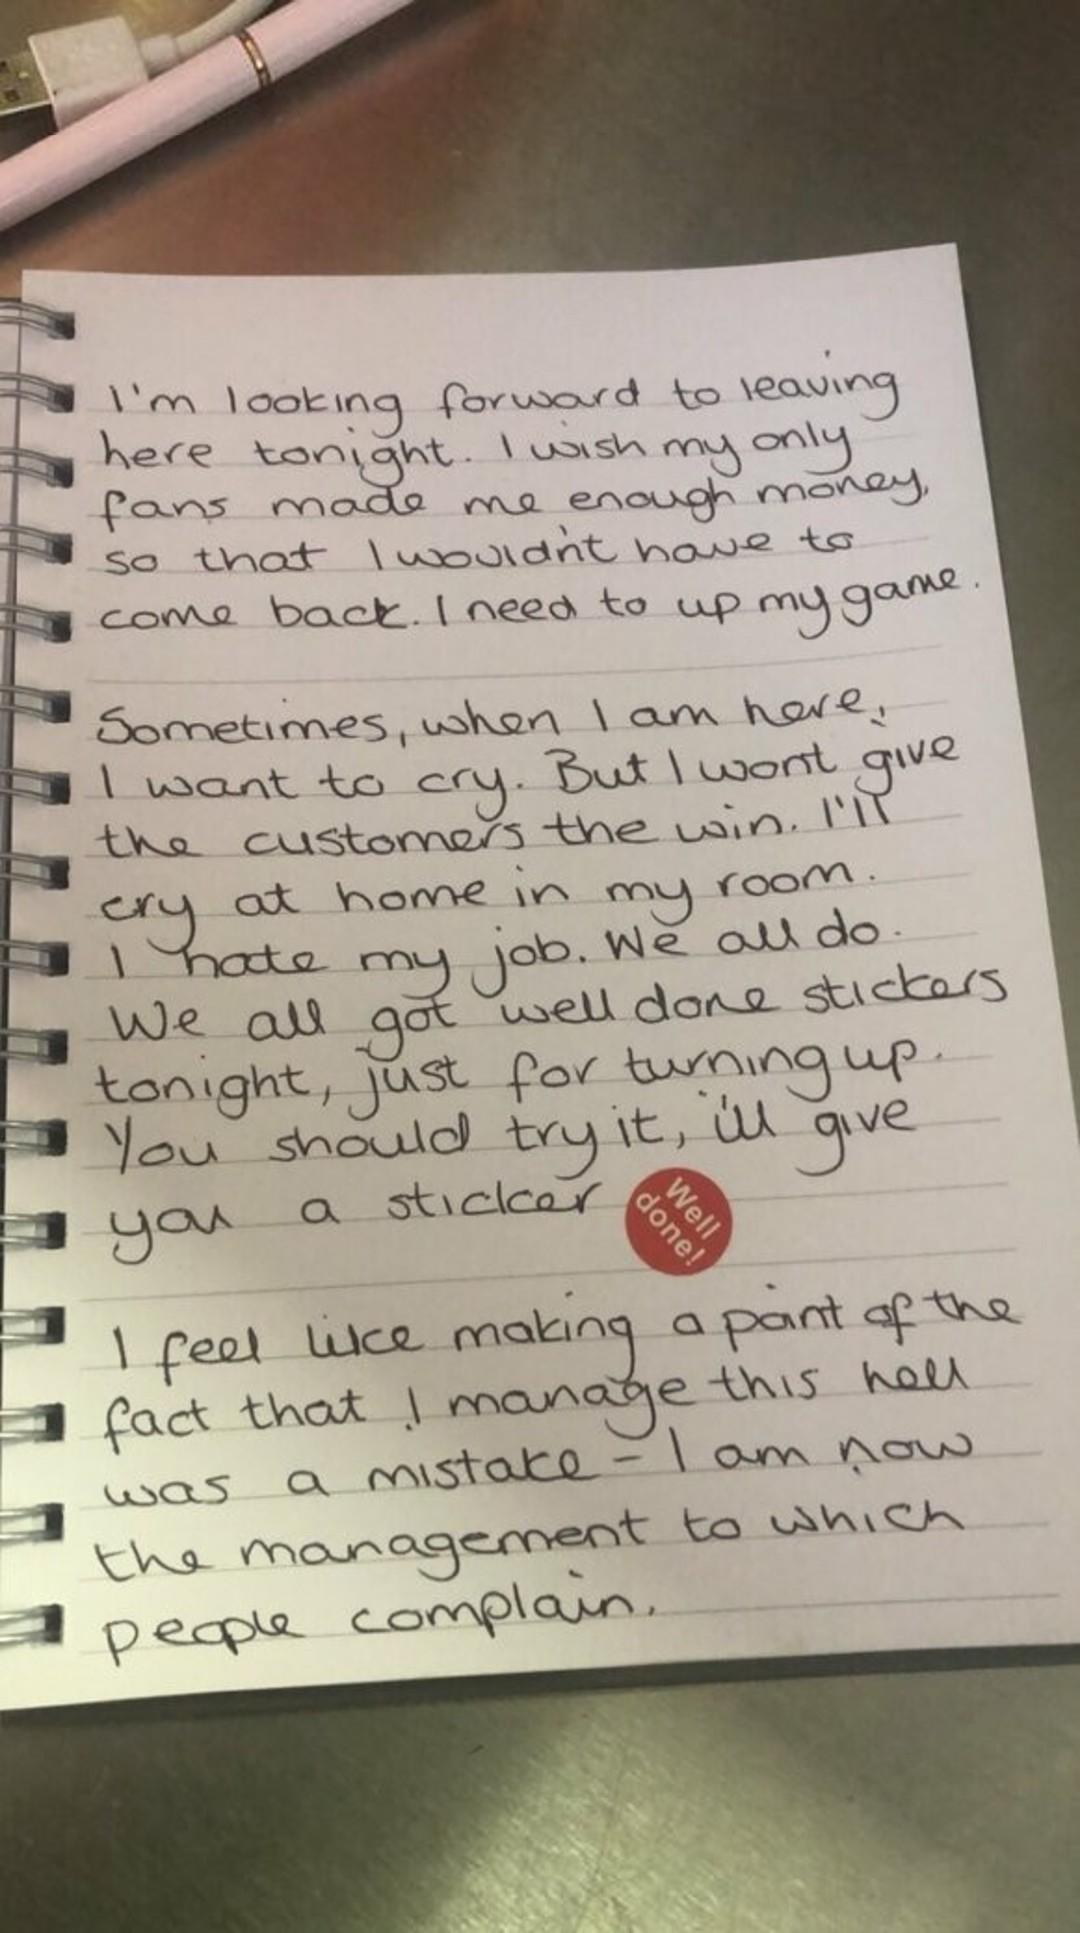 I'm looking forward to leaving
here tonight. I wish my only
fans made me enough money,
so that I wouldn't have to
come back. I need to up my game.
Sometimes, when I am here,
I want to cry. But I wont give
the customers the win. I'll
cry at home in my room.
I hate my job. We all do.
We all got well done stickers
tonight, just for turning up.
You should try it, i'll give
you a sticker
Well
done!
I feel like making a point of the
fact that I manage this hell
was a mistake - I am now
the management to which
people complain.